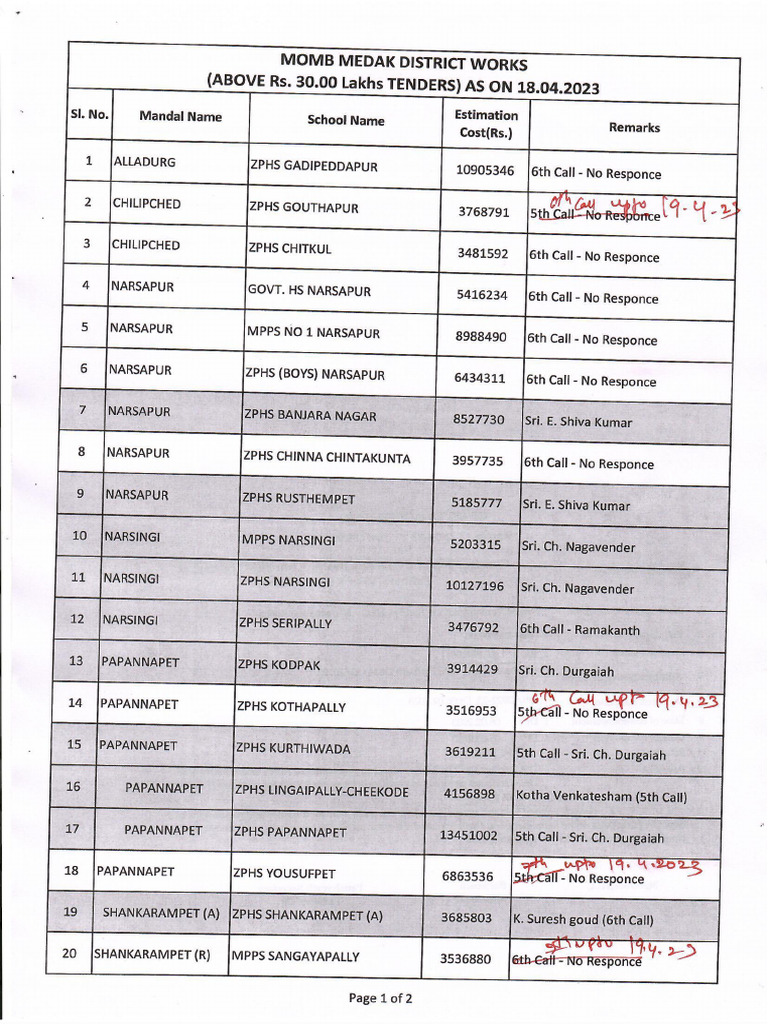 MOMB MEDAK DISTRICT WORKS
(ABOVE Rs. 30.00 Lakhs TENDERS) AS ON 18.04.2023
Sl. No. Mandal Name School Name Estimation Cost(Rs.) Remarks
1 ALLADURG ZPHS GADIPEDDAPUR 10905346 6th Call - No Responce
Call upto 19.4.23
2 CHILIPCHED ZPHS GOUTHAPUR 3768791 5th Call - No Responce
3 CHILIPCHED ZPHS CHITKUL 3481592 6th Call - No Responce
4 NARSAPUR GOVT. HS NARSAPUR 5416234 6th Call - No Responce
5 NARSAPUR MPPS NO 1 NARSAPUR 8988490 6th Call - No Responce
6 NARSAPUR ZPHS (BOYS) NARSAPUR 6434311 6th Call - No Responce
7 NARSAPUR ZPHS BANJARA NAGAR 8527730 Sri. E. Shiva Kumar
8 NARSAPUR ZPHS CHINNA CHINTAKUNTA 3957735 6th Call - No Responce
9 NARSAPUR ZPHS RUSTHEMPET 5185777 Sri. E. Shiva Kumar
10 NARSINGI MPPS NARSINGI 5203315 Sri. Ch. Nagavender
11 NARSINGI ZPHS NARSINGI 10127196 Sri. Ch. Nagavender
12 NARSINGI ZPHS SERIPALLY 3476792 6th Call - Ramakanth
13 PAPANNAPET ZPHS KODPAK 3914429 Sri. Ch. Durgaiah
6th Call upto 19.4.23
14 PAPANNAPET ZPHS KOTHAPALLY 3516953 5th Call - No Responce
15 PAPANNAPET ZPHS KURTHIWADA 3619211 5th Call - Sri. Ch. Durgaiah
16 PAPANNAPET ZPHS LINGAIPALLY-CHEEKODE 4156898 Kotha Venkatesham (5th Call)
17 PAPANNAPET ZPHS PAPANNAPET 13451002 5th Call - Sri. Ch. Durgaiah
7th upto 19.4.2023
18 PAPANNAPET ZPHS YOUSUFPET 6863536 5th Call - No Responce
19 SHANKARAMPET (A) ZPHS SHANKARAMPET (A) 3685803 K. Suresh goud (6th Call)
upto 19.4.23
20 SHANKARAMPET (R) MPPS SANGAYAPALLY 3536880 6th Call - No Responce
Page 1 of 2